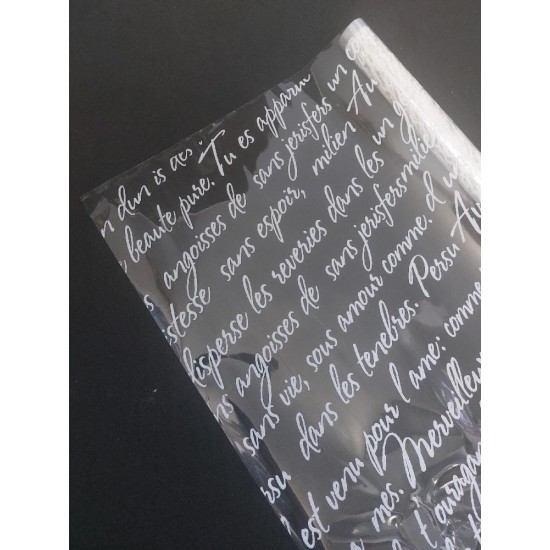 dun is des
beaute pure. Tu es apparu
angoisses de sans jerisfers un
stesse sans espoir, milien Au
disperse les reveries dans les un
angoisses de sans jerisfersmilie
sans vie, sous amour comme. d un
Persu dans les tenelres. Persu Au
est venu pour l ame: comme
mes. Merveilleu
t ouragan